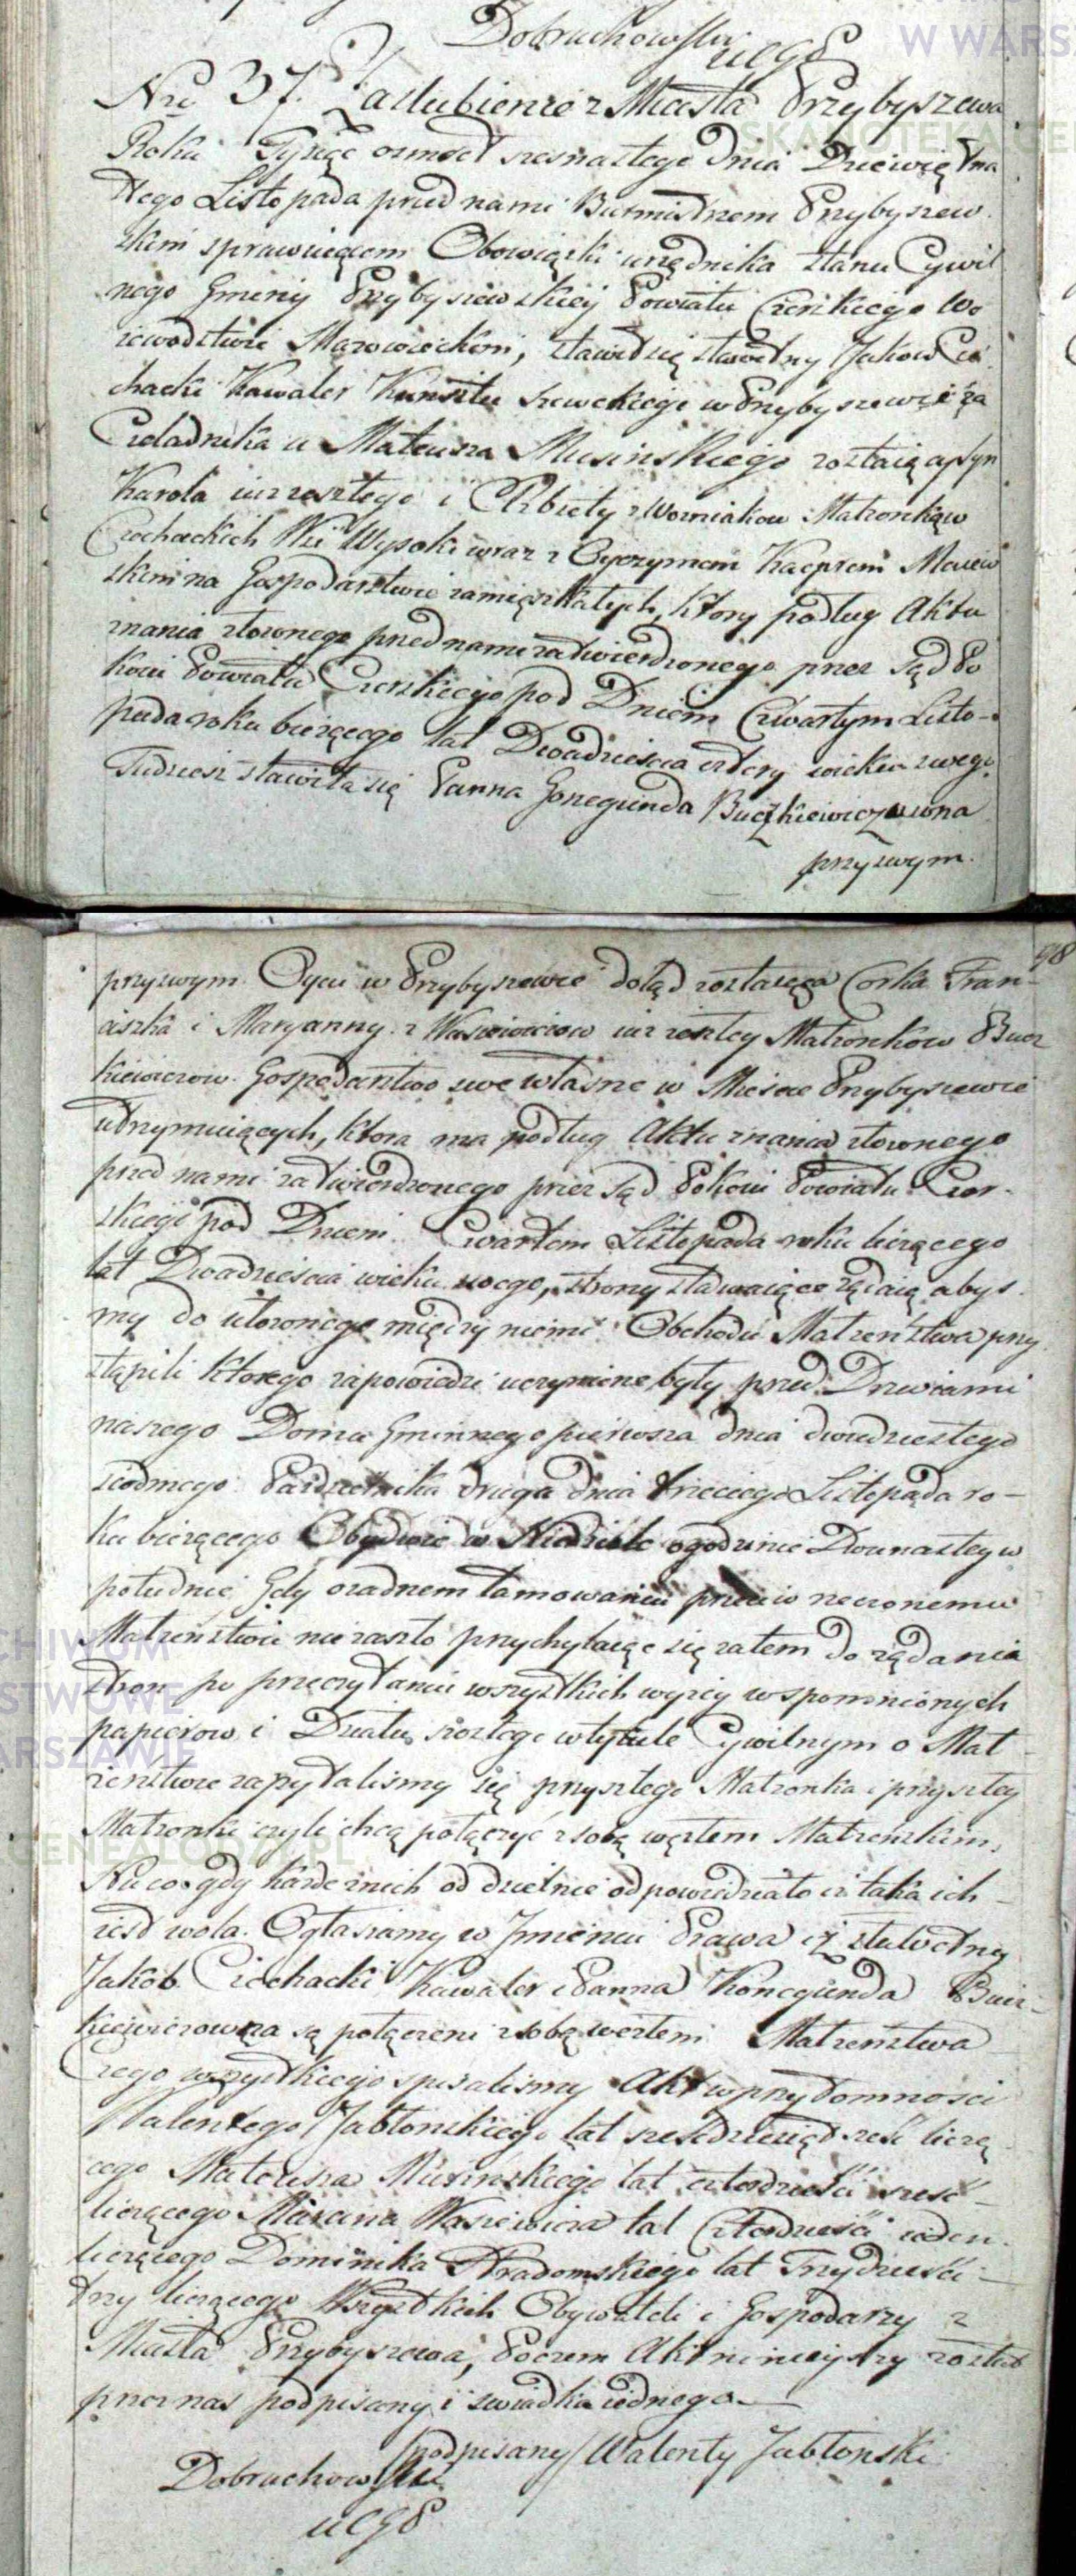 Dobruchowski
UCGP
Nro 37. Zaslubienie z Miasta Przybyszewa
Roku Tysiąc osmset szesnastego dnia Dziewiętna
stego Listopada przed nami Burmistrzem Przybyszew
skim sprawuiącem Obowiązki urzędnika stanu Cywil
nego Gminy Przybyszewskiey Powiatu Czerskiego Wo
iewodztwie Mazowieckim, stawił się sławetny Jakow Cio
chacki Kawaler Kunsztu szewckiego w Przybyszewie za
Czeladnika u Mateusza Musinskiego zostaiący syn
Karola iuz zeszłego i Elzbiety z Wozniakow Małzonków
Ciochackich Wsi Wysoki wraz z Oyczymem Kacprem Maciew
skim na Gospodarstwie zamięszkałych, ktory podług Aktu
znania złozonego przed nami zatwierdzonego przez Sąd Po
koiu Powiatu Czerskiego pod Dniem Czwartym Listo-
pada roku bieżącego lat Dwadzieścia cztery wieku swego
Tudziesz stawiła się Panna Gonegunda Buczkiewiczowna
przyswym.
98
przyswym Oycu w Przybyszewie dotąd zostaięca Corka Fran-
ciszka i Maryanny z Wasiewiczow iuz zeszłey Małzonkow Bucz
kiewiczow Gospodarstwo swe własne w Miescie Przybyszewie
utrzymuiących, ktora ma podług Aktu znania złozonego
przed nami zatwierdzonego przez Sąd Pokoiu Powiatu Czer-
skiego pod Dniem Czwartem Listopada roku bieżącego
lat Dwadzieścia wieku swego, strony stawaiące żądaią abys
my do ułozonego między niemi Obchodu Małzeństwa przy
stąpili ktorego zapowiedzi uczynione były przed Drzwiami
naszego Domu Gminnego pierwsza dnia dwudziestego
siodmego Pazdziernika druga dnia trzeciego Listopada ro-
ku bieżącego Obydwie w Niedziele o godzinie Dwunastey w
południe Gdy o żadnem tamowaniu przeciw rzeczonemu
Małzeństwu nie zaszło przychylaiąc się zatem do żądania
stron po przeczytaniu wszystkich wyzey wspomnionych
papierow i Działu szostego w tytule Cywilnym o Mał
zeństwie zapytaliśmy się przyszłego Małzonka i przyszłey
Małzonki czyli chcą połączyć z sobą węzłem Małzenskim,
Na co gdy każde z nich oddzielnie odpowiedziało iż taka ich
iest wola. Ogłaszamy w Imieniu Prawa iż sławetny
Jakób Ciochacki Kawaler i Panna Konegunda Bucz-
kiewiczowna są połączeni z sobą węzłem Małzenstwa
Czego wszystkiego spisaliśmy Akt w przytomnosci
Walentego Jabłonskiego lat szesdziesiąt sześć liczą
cego Mateusza Musinskiego lat czterdzieści sześć
liczącego Marcina Wasiewicza lat Czterdzieści ieden
liczącego Dominika Stradomskiego lat Trzydzieści
trzy liczącego Wszystkich Obywateli i Gospodarzy z
Miasta Przybyszewa, Poczem Akt ninieyszy został
przez nas podpisany i swiadka iednego
/podpisany/ Walenty Jabłonski
Dobruchowski
UCGP